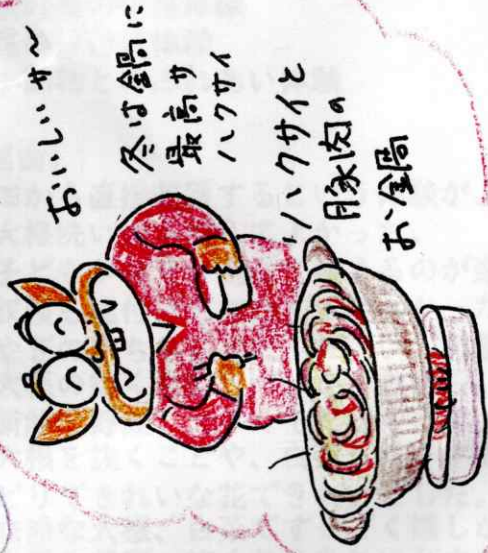 おいしいサ〜
冬は鍋に
最高サ
ハクサイ
ハクサイと
豚肉の
お鍋